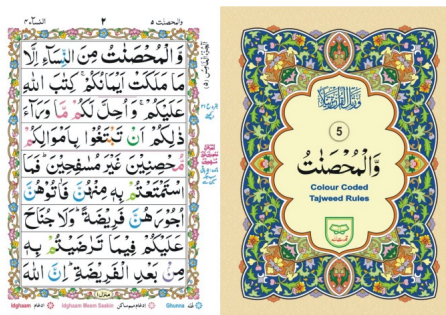 والمحصنت ٥
٢
النسآء ٤
وَّالْمُحْصَنٰتُ مِنَ النِّسَآءِ اِلَّا
مَا مَلَكَتْ اَيْمَانُكُمْ ۚ كِتٰبَ اللّٰهِ
عَلَيْكُمْ ۚ وَاُحِلَّ لَكُمْ مَّا وَرَآءَ
ذٰلِكُمْ اَنْ تَبْتَغُوْا بِاَمْوَالِكُمْ
مُّحْصِنِيْنَ غَيْرَ مُسٰفِحِيْنَ ؕ فَمَا
اسْتَمْتَعْتُمْ بِهٖ مِنْهُنَّ فَاٰتُوْهُنَّ
اُجُوْرَهُنَّ فَرِيْضَةً ؕ وَلَا جُنَاحَ
عَلَيْكُمْ فِيْمَا تَرٰضَيْتُمْ بِهٖ
مِنْۢ بَعْدِ الْفَرِيْضَةِ ؕ اِنَّ اللّٰهَ
منزل ١
Idghaam ادغام
Idghaam Meem Saakin ادغام میم ساکن
Ghunna غنہ
5
وَالْمُحْصَنٰتُ
Colour Coded
Tajweed Rules